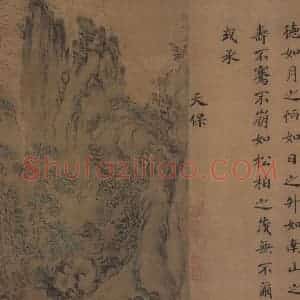 德如月之恒如日之升如南山之
壽不騫不崩如松柏之茂無不爾
或承
天保
Shufaziliao.com